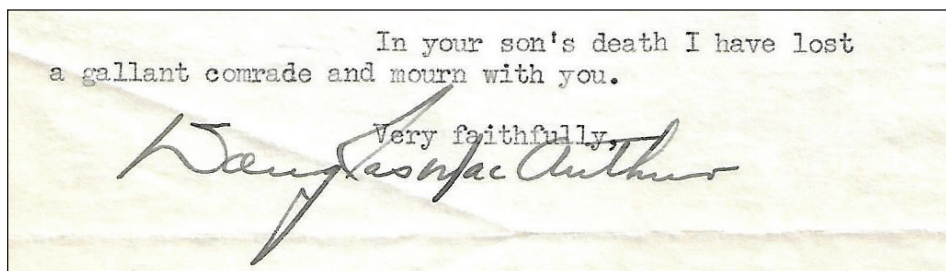 In your son's death I have lost
a gallant comrade and mourn with you.
Very faithfully,
Douglas MacArthur